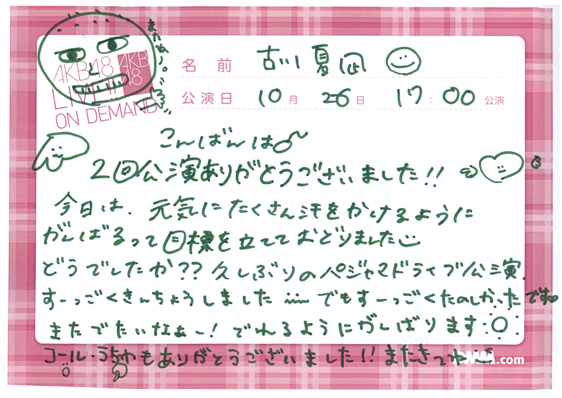 またねっ。
AKB48
LIVE!!
ON DEMAND
AKB48
名前 古川夏凪
公演日 10月26日 17:00公演
こんばんは
2回公演ありがとうございました!!
今日は、元気にたくさん汗をかけるように
がんばるって目標を立てておどりました
どうでしたか?? 久しぶりのパジャマドライブ公演、
すーっごくきんちょうしました でもすーっごくたのしかったです
またでたいなぁー! でれるようにがんばります
コール・うちわもありがとうございました!! またきてね
.com